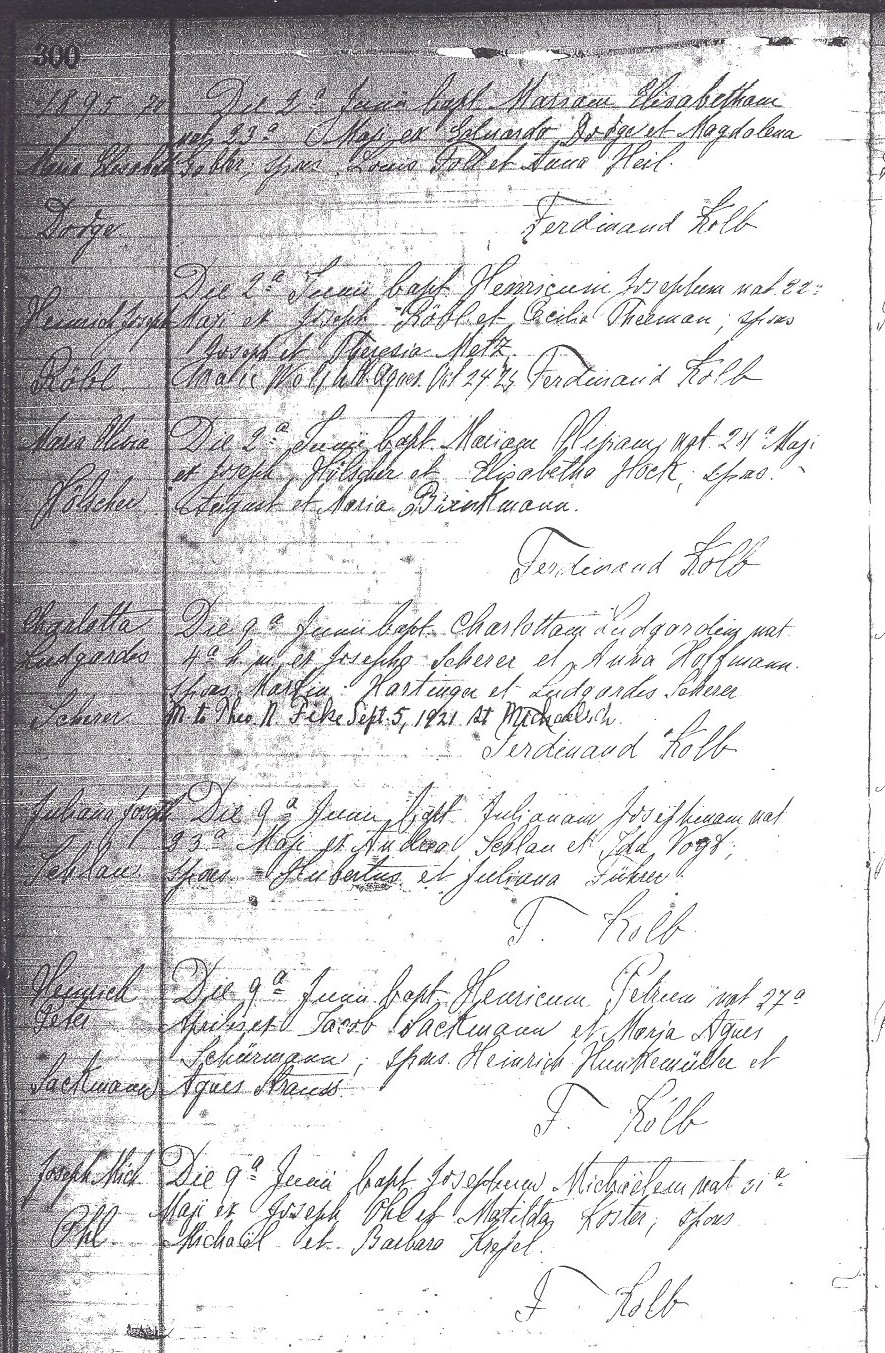 300
1895 70 Die 2ª Junii bapt Mariam Elisabetham
nat 23ª Maji ex Eduardo Dodge et Magdalena
Maria Elisabeth spons Louis Foll et Anna Heil.
Dodge Ferdinand Kolb
Die 2ª Junii bapt Henricum Josephum nat 22ª
Heinrich Joseph Maji ex Joseph Röbl et Cecilia Theeman, spons
Joseph et Theresia Metz
Röbl Ferdinand Kolb
Maria Die 2ª Junii bapt. Mariam nat 24ª Maji
ex Joseph Hölscher et Elizabetha Hock, spons.
Hölscher August et Maria Brinkmann.
Ferdinand Kolb
Charlotta Die 9ª Junii bapt. Charlottam Ludgardim nat
Ludgardes 4ª h. m. ex Josepho Scherer et Anna Hoffmann.
spons Martin Hartinger et Ludgardes Scherer
Scherer M to Theo. N. Fike Sept. 5, 1921 St Michaels ch.
Ferdinand Kolb
Juliana Joseph Die 9ª Junii bapt Julianam Josephinam nat
23ª Maji ex Andrea Schlau et Ida Vogt;
Schlau spons Hubertus et Juliana Führer
F. Kolb
Heinrich Die 9ª Junii bapt Henricum Petrum nat 27ª
Peter Aprilis et Jacob Sackmann et Maria Agnes
Schürmann; spons. Heinrich Hunkemüller et
Sackmann Agnes Strauss.
F. Kolb
Joseph Mich Die 9ª Junii bapt Josephum Michaëlem nat 31ª
Maji ex Joseph Ohl et Matilda Koster; spons
Ohl Michaël et Barbara
F Kolb